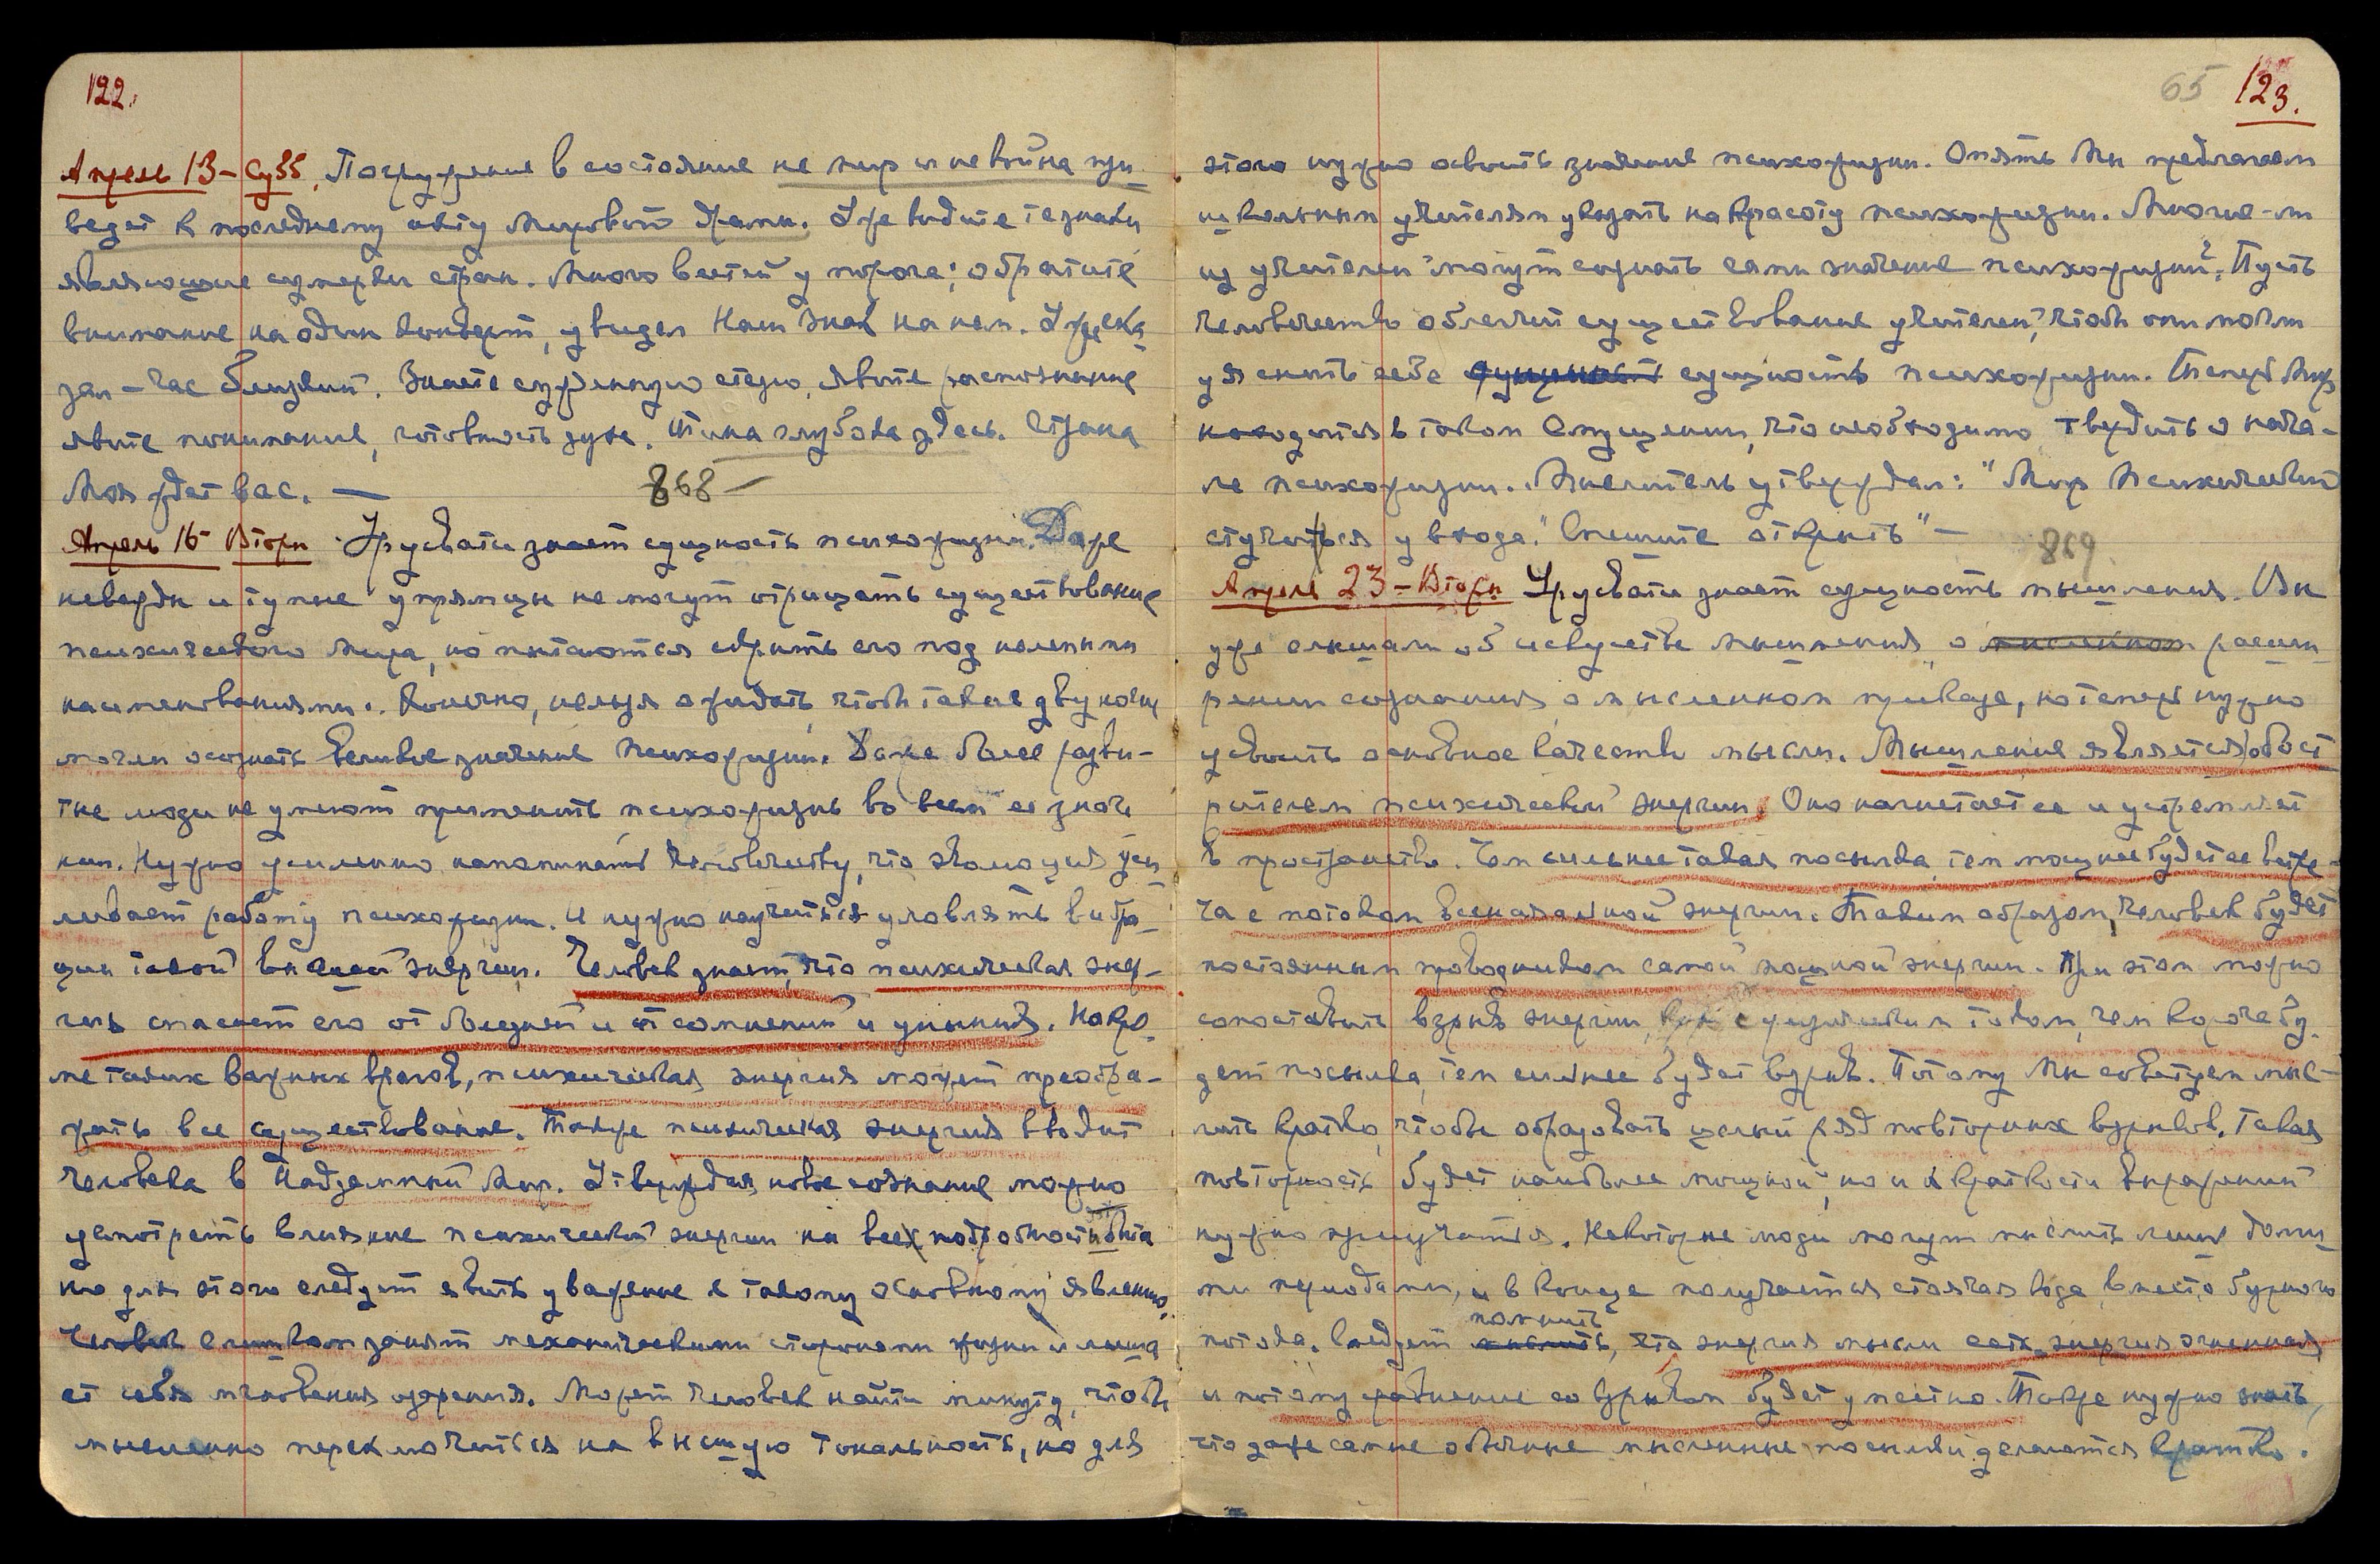 122.
Апрель 13 – Субб. Погружение в состояние не мир и не война при-
ведет к последнему акту Мировой Драмы. Уже видите те знаки
являющие сумерки стран. Много вестей у порога; обратите
внимание на один конверт, увидев Наш Знак на нем. Уже ска-
зал – час близкий. Знаете сужденную стезю, явите распознание
явите понимание, готовность духа. Тина глубока здесь. Страна
Моя ждет вас. —
868 —
Апрель 16 – Вторн Урусвати знает сущность психожизни. Даже
невежды и тупые упрямцы не могут отрицать существование
психического Мира, но пытаются скрыть его под нелепыми
наименованиями. Конечно, нельзя ожидать, чтобы такие двуногие
могли осознать великое значение Психожизни. Даже более разви-
тые люди не умеют применить психожизнь во всем ее значе
нии. Нужно усиленно напоминать Человечеству, что эволюция уси-
ливает работу психожизни. И нужно научиться уловлять вибра-
ции такой высшей энергии. Человек знает, что психическая энер-
гия спасает его от болезней и от сомнений и уныния. Но кро-
ме таких важных врагов, психическая энергия может преобра-
зить все существование. Также психическая энергия вводит
человека в Надземный Мир. Утверждая новое сознание можно
усмотреть влияние психической энергии на всех подробностях быта
но для этого следует явить уважение к такому основному явлению.
Человек слишком занят механическими сторонами жизни и лиша
ет себя мгновения озарения. Может человек найти минуту, чтобы
мысленно переключиться на высшую тональность, но для
65 123.
этого нужно освоить значение психожизни. Опять Мы предлагаем
школьным учителям указать на красоту психожизни. Многие-ли
из учителей могут сознать сами значение психожизни? Пусть
человечество облегчит существование учителей, чтобы они могли
уяснить себе сущность психожизни. Теперь Мир
находится в таком смущении, что необходимо твердить о нача-
ле психожизни. Мыслитель утверждал: "Мир Психический
стучится у входа. Спешите открыть" —
869
Апрель 23 – Вторн Урусвати знает сущность мышления. Вы
уже слышали об искусстве мышления, о расши-
рении сознания, о мысленном приказе, но теперь нужно
усвоить основное качество мысли. Мышление является обост
рителем психической энергии. Оно нагнетает ее и устремляет
в пространство. Чем сильнее такая посылка, тем мощнее будет ее встре-
ча с потоком всеначальной энергии. Таким образом, человек будет
постоянным проводником самой мощной энергии. При этом можно
сопоставить взрыв энергии с физическим током, чем короче бу-
дет посылка, тем сильнее будет взрыв. Потому Мы советуем мыс-
лить кратко, чтобы образовать целый ряд повторных взрывов. Такая
повторность будет наиболее мощной, но и к краткости выражений
нужно приучаться. Некоторые люди могут мыслить лишь долги-
ми периодами, и в конце получается стоячая вода, вместо бурного
потока. Следует помнить, что энергия мысли есть энергия огненная
и потому сравнение со взрывом будет уместно. Также нужно знать,
что даже самые обычные мысленные посылки делаются кратко.